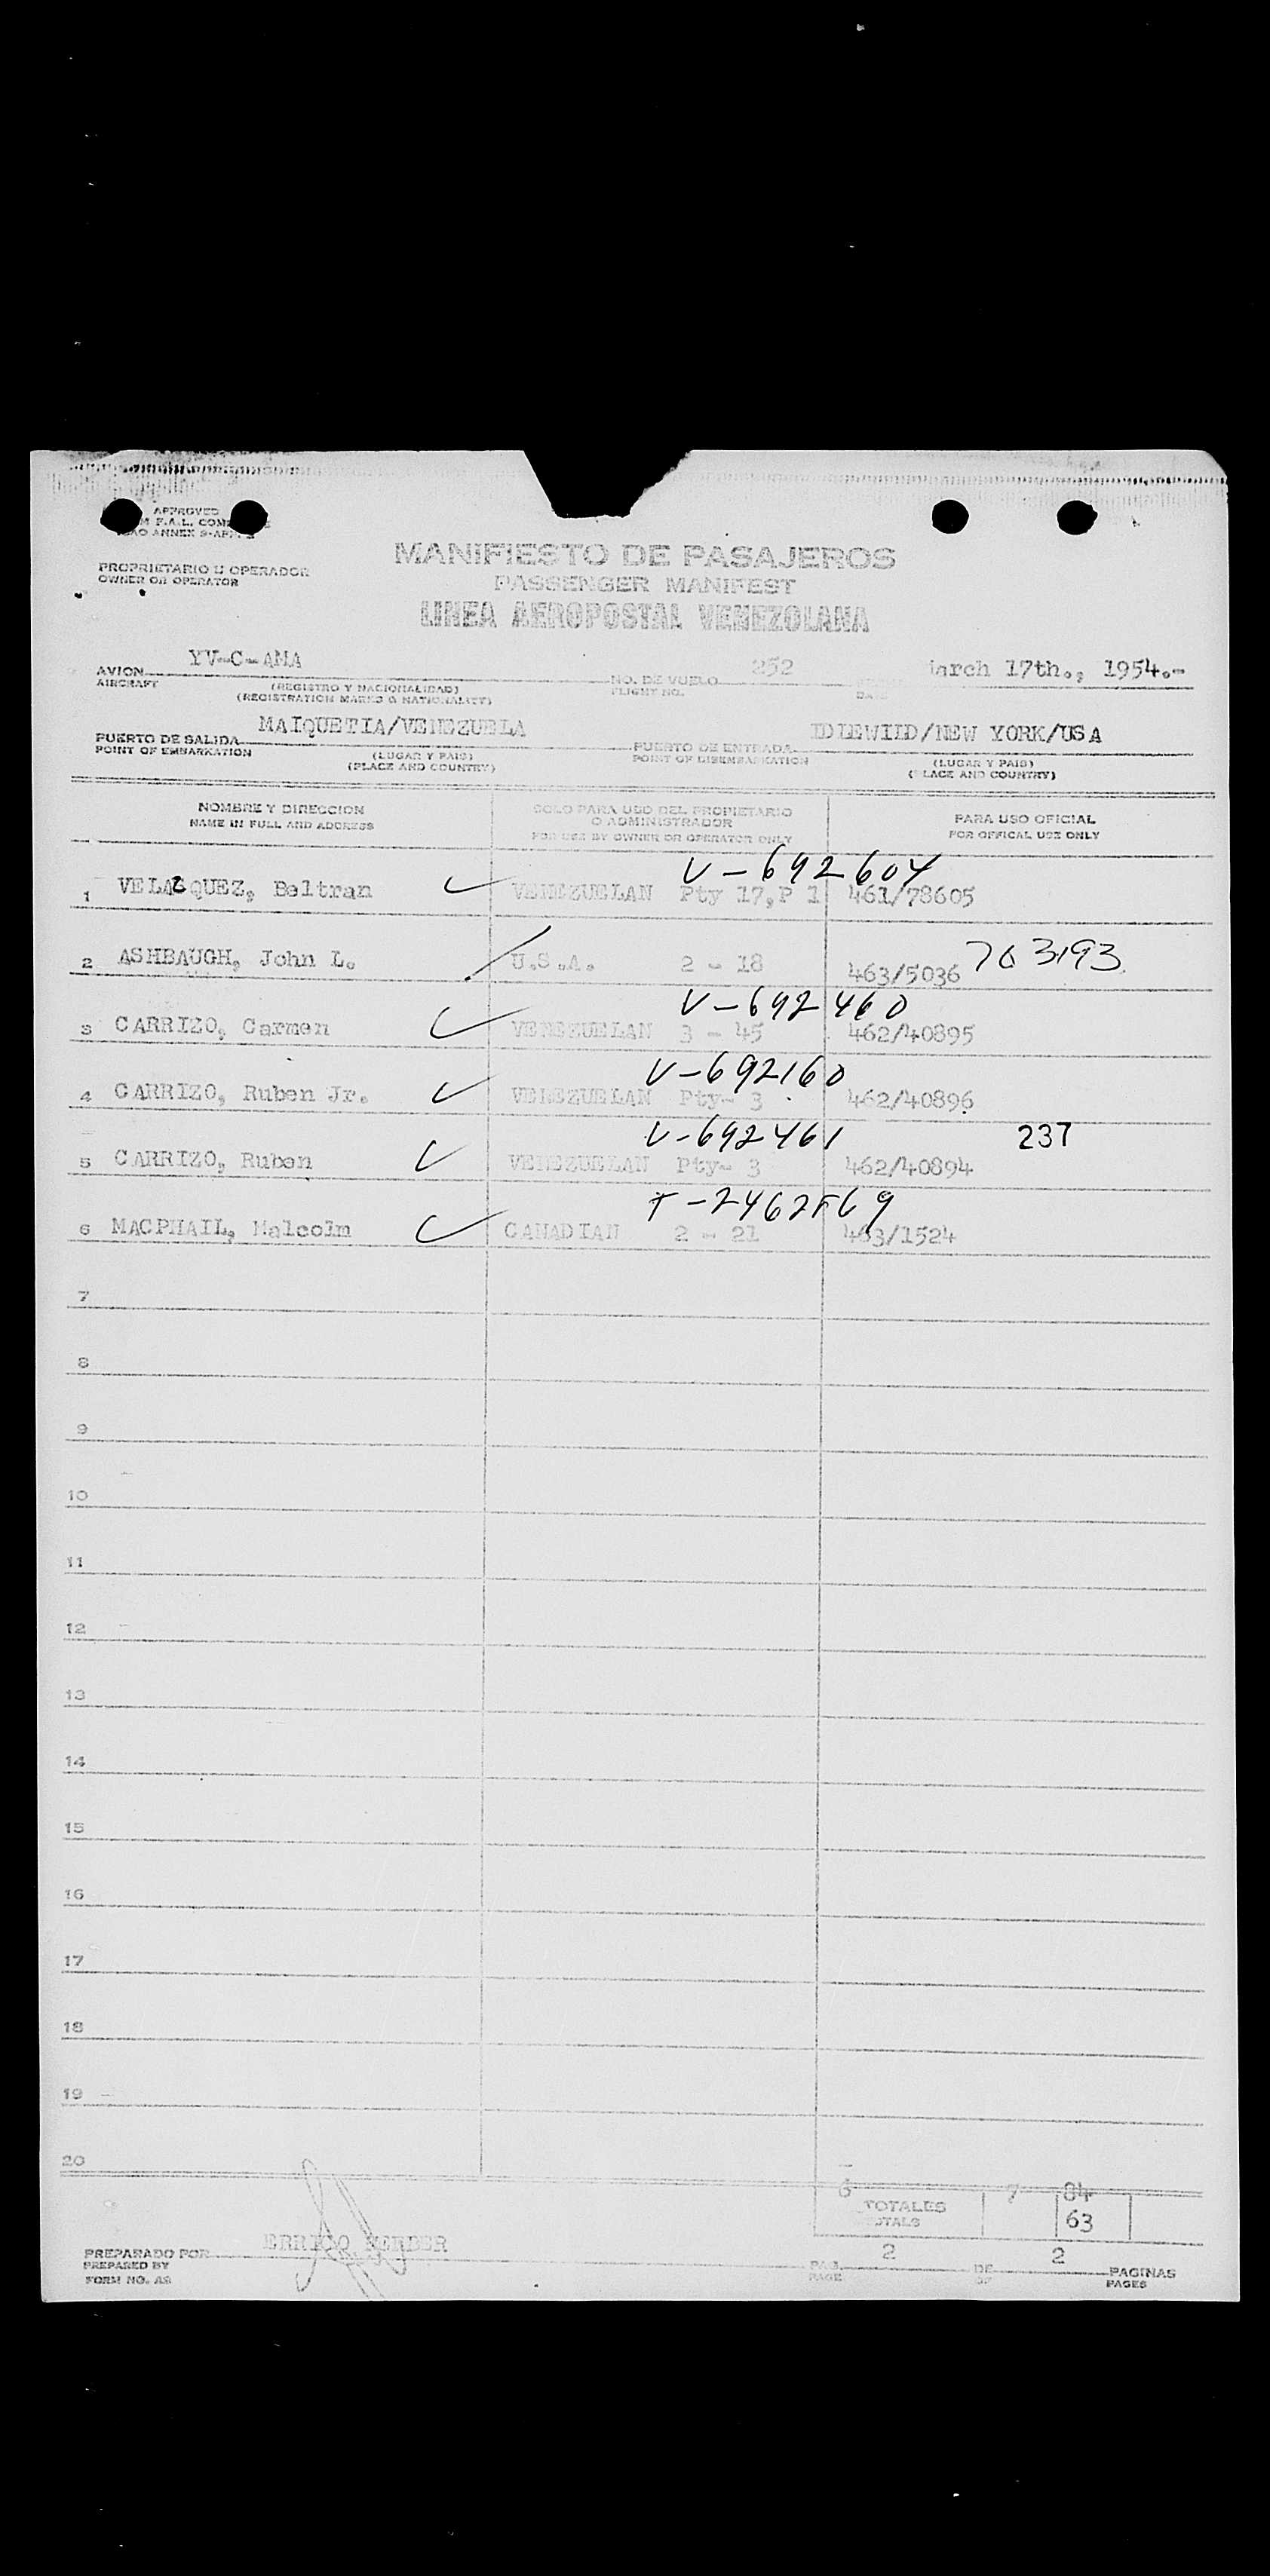 APPROVED
MANIFIESTO DE PASAJEROS
PASSENGER MANIFEST
LINEA AEROPOSTAL VENEZOLANA
PROPRIETARIO U OPERADOR
OWNER OR OPERATOR
AVION YV-C-AMA NO. DE VUELO 252 March 17th., 1954.-
AIRCRAFT (REGISTRO Y NACIONALIDAD) FLIGHT NO.
(REGISTRATION MARKS & NATIONALITY)
PUERTO DE SALIDA MAIQUETIA/VENEZUELA PUERTO DE ENTRADA IDLEWILD/NEW YORK/USA
POINT OF EMBARKATION (LUGAR Y PAIS) POINT OF DISEMBARKATION (LUGAR Y PAIS)
(PLACE AND COUNTRY) (PLACE AND COUNTRY)
NOMBRE Y DIRECCION SOLO PARA USO DEL PROPIETARIO O ADMINISTRADOR PARA USO OFICIAL
NAME IN FULL AND ADDRESS FOR USE BY OWNER OR OPERATOR ONLY FOR OFFICAL USE ONLY
V-692604
1 VELAZQUEZ, Beltran VENEZUELAN Pty 17,P 1 461/78605
2 ASHBAUGH, John L. U.S.A. 2 - 18 463/5036 763193
V-692460
3 CARRIZO, Carmen VENEZUELAN 3 - 45 462/40895
V-692160
4 CARRIZO, Ruben Jr. VENEZUELAN Pty- 3 462/40896
V-692461 237
5 CARRIZO, Ruben VENEZUELAN Pty- 3 462/40894
6 MACPHAIL, Malcolm CANADIAN 2 - 21 463/1524
7
8
9
10
11
12
13
14
15
16
17
18
19
20
6 7 84
TOTALES 63
TOTALS
PREPARADO POR ERRICO 2 2
PREPARED BY PAG. DE PAGINAS
FORM NO. PAGE OF PAGES